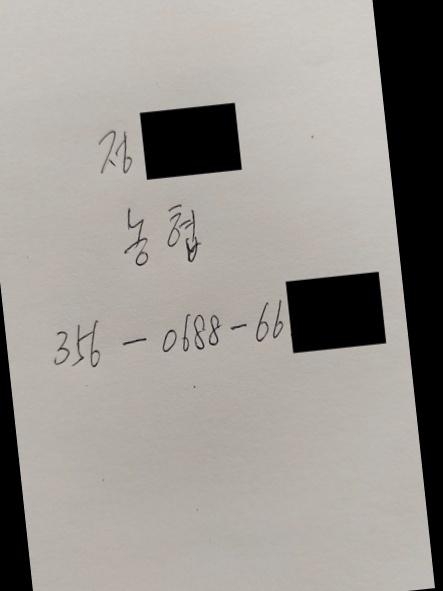 정
농협
356-0688-66